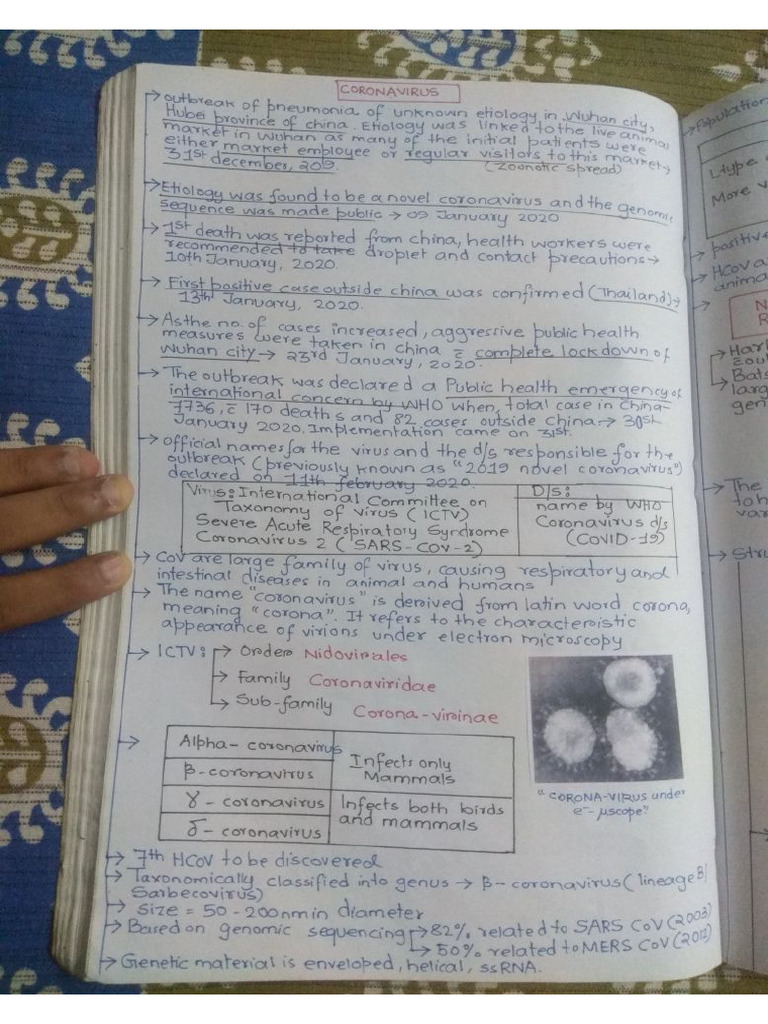 CORONAVIRUS
→ outbreak of pneumonia of unknown etiology in Wuhan city,
Hubei province of china. Etiology was linked to the live animal
market in wuhan as many of the initial patients were
either market employee or regular visitors to this market→
31st december, 209. (Zoonotic spread)
→ Etiology was found to be a novel coronavirus and the genomic
sequence was made public → 09 January 2020
→ 1st death was reported from china, health workers were
recommended to take droplet and contact precautions→
10th January, 2020.
→ First positive case outside china was confirmed (Thailand)→
13th January, 2020.
→ As the no. of cases increased, aggressive public health
measures were taken in china c̄ complete lockdown of
Wuhan city → 23rd January, 2020.
→ The outbreak was declared a Public health emergency of
international concern by WHO when, total case in China-
7736, c̄ 170 deaths and 82 cases outside china → 30st
January 2020. Implementation came on 31st.
→ official names for the virus and the d/s responsible for the
outbreak (previously known as "2019 novel coronavirus")
declared on 11th february 2020.
Virus: International Committee on
Taxonomy of virus (ICTV)
Severe Acute Respiratory Syndrome
Coronavirus 2 (SARS-CoV-2)
D/s:
name by WHO
Coronavirus d/s
(COVID-19)
→ CoV are large family of virus, causing respiratory and
intestinal diseases in animal and humans
→ The name "coronavirus" is derived from latin word corona,
meaning "corona". It refers to the characteristic
appearance of virions under electron microscopy
→ ICTV: → Order: Nidovirales
→ Family Coronaviridae
→ Sub-family Corona-virinae
→ Alpha-coronavirus
β-coronavirus
Infects only
Mammals
γ - coronavirus
δ - coronavirus
Infects both birds
and mammals
"CORONA-VIRUS under
e⁻ μscope"
→ 7th HCoV to be discovered
→ Taxonomically classified into genus → β-coronavirus (lineage B/
Sarbecovirus)
→ Size = 50-200nm in diameter
→ Based on genomic sequencing → 82% related to SARS CoV (2003)
→ 50% related to MERS CoV (2012)
→ Genetic material is enveloped, helical, ssRNA.
→ Population
More v
→ positive
→ HCoV a
anima
N
R
→ Har
→ Bats
larg
gen
→ The
to h
var
→ Stru